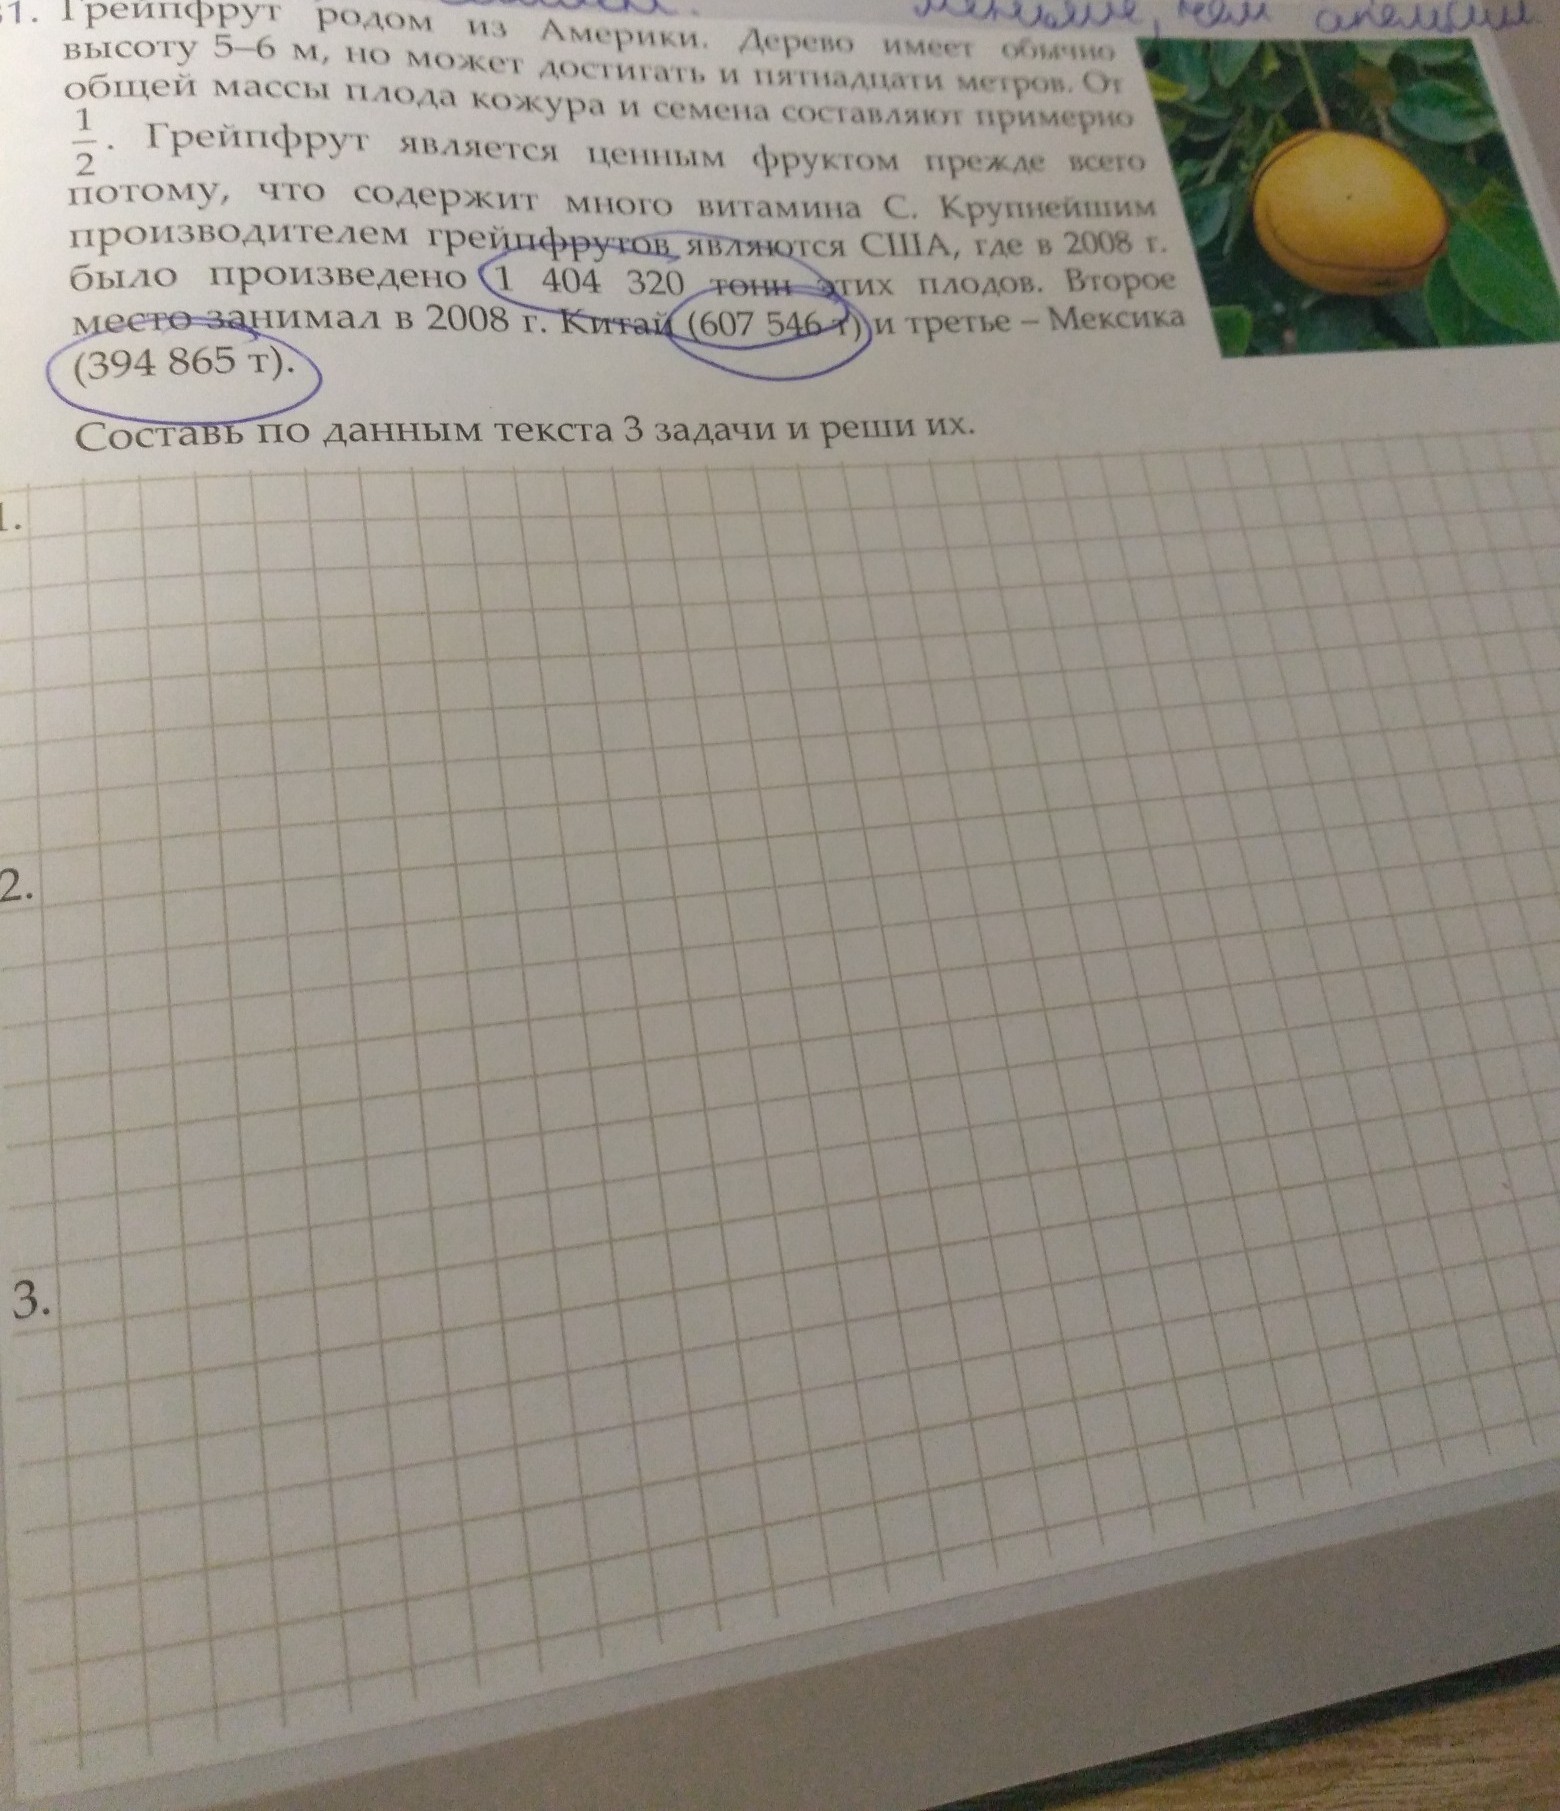 31. Грейпфрут родом из Америки. Дерево имеет обычно
высоту 5–6 м, но может достигать и пятнадцати метров. От
общей массы плода кожура и семена составляют примерно
1/2. Грейпфрут является ценным фруктом прежде всего
потому, что содержит много витамина С. Крупнейшим
производителем грейпфрутов являются США, где в 2008 г.
было произведено 1 404 320 тонн этих плодов. Второе
место занимал в 2008 г. Китай (607 546 т) и третье – Мексика
(394 865 т).
Составь по данным текста 3 задачи и реши их.
1.
2.
3.